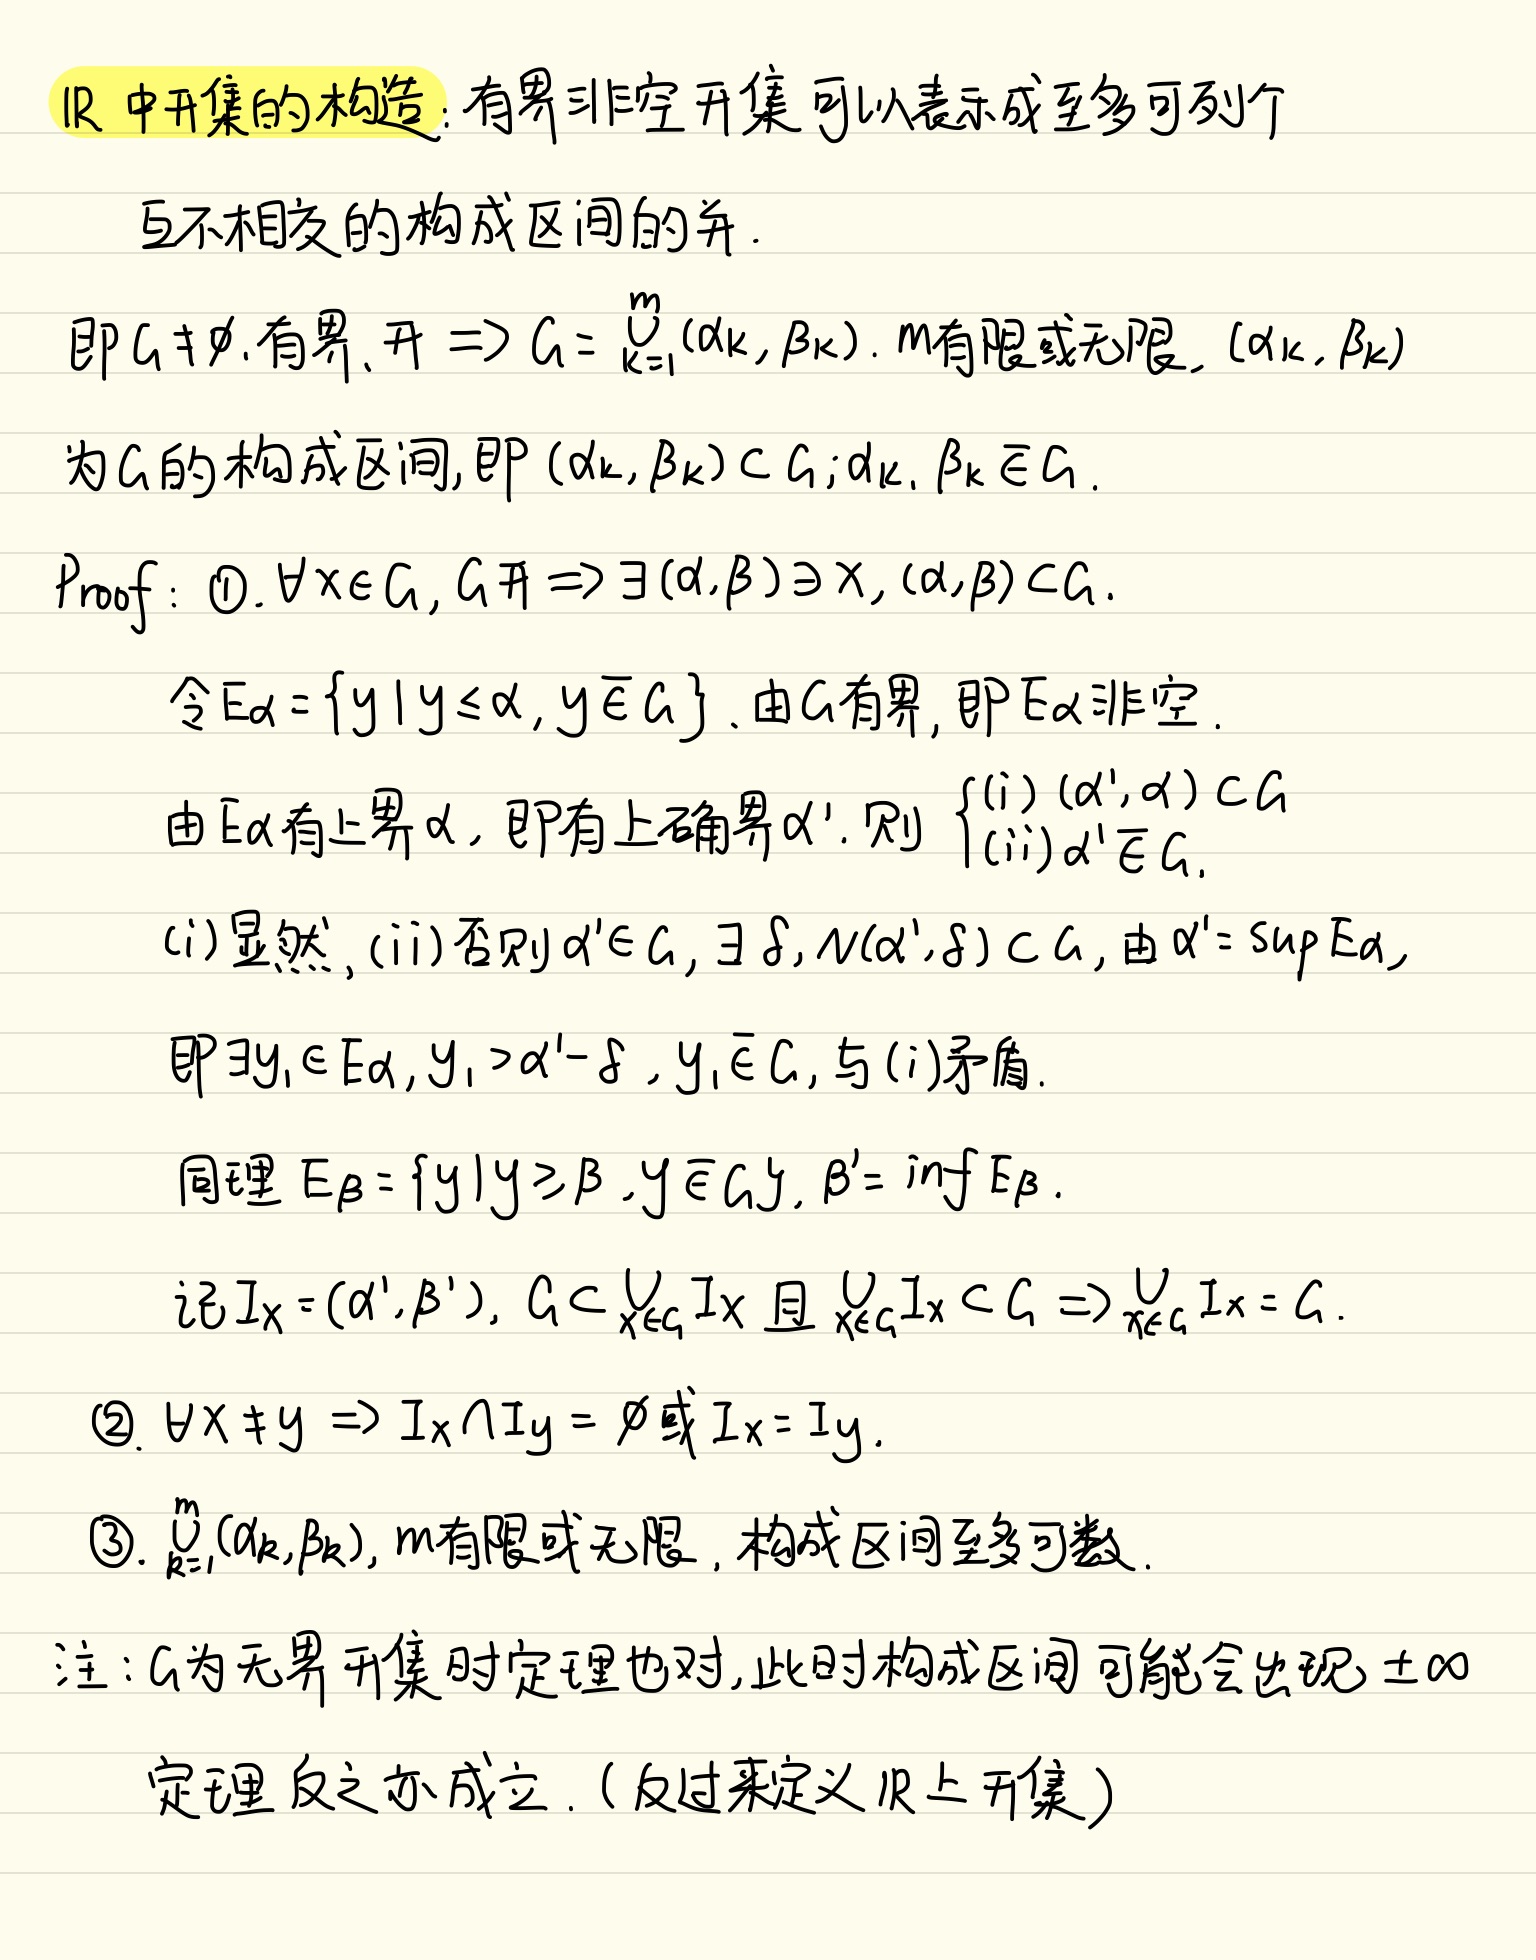 IR 中开集的构造：有界非空开集可以表示成至多可列个
互不相交的构成区间的并.
即G≠∅.有界、开 => G = ⋃_{k=1}^{m} (αk, βk). m有限或无限, (αk, βk)
为G的构成区间,即(αk, βk)⊂G;αk、βk ∈̅ G.
Proof: ①. ∀x∈G, G开 => ∃(α,β)∋x, (α,β)⊂G.
令Eα={y|y≤α, y∈̅G}、由G有界,即Eα非空.
由Eα有上界α, 即有上确界α'. 则 {(i) (α',α)⊂G
(ii) α'∈̅G.
(i)显然、(ii)否则α'∈G, ∃δ, N(α',δ)⊂G, 由α'=sup Eα,
即∃y₁∈Eα, y₁>α'-δ, y₁∈̅G, 与(i)矛盾.
同理 Eβ={y|y≥β, y∈̅G}, β'=inf Eβ.
记Ix=(α',β'), G⊂⋃_{x∈G} Ix 且 ⋃_{x∈G} Ix⊂G => ⋃_{x∈G} Ix=G.
②. ∀x≠y => Ix∩Iy=∅或Ix=Iy.
③. ⋃_{k=1}^{m} (αk,βk), m有限或无限, 构成区间至多可数.
注:G为无界开集时定理也对,此时构成区间可能会出现±∞
定理反之亦成立.(反过来定义IR上开集)